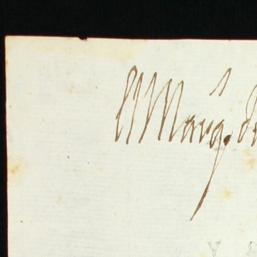 El Marq. de